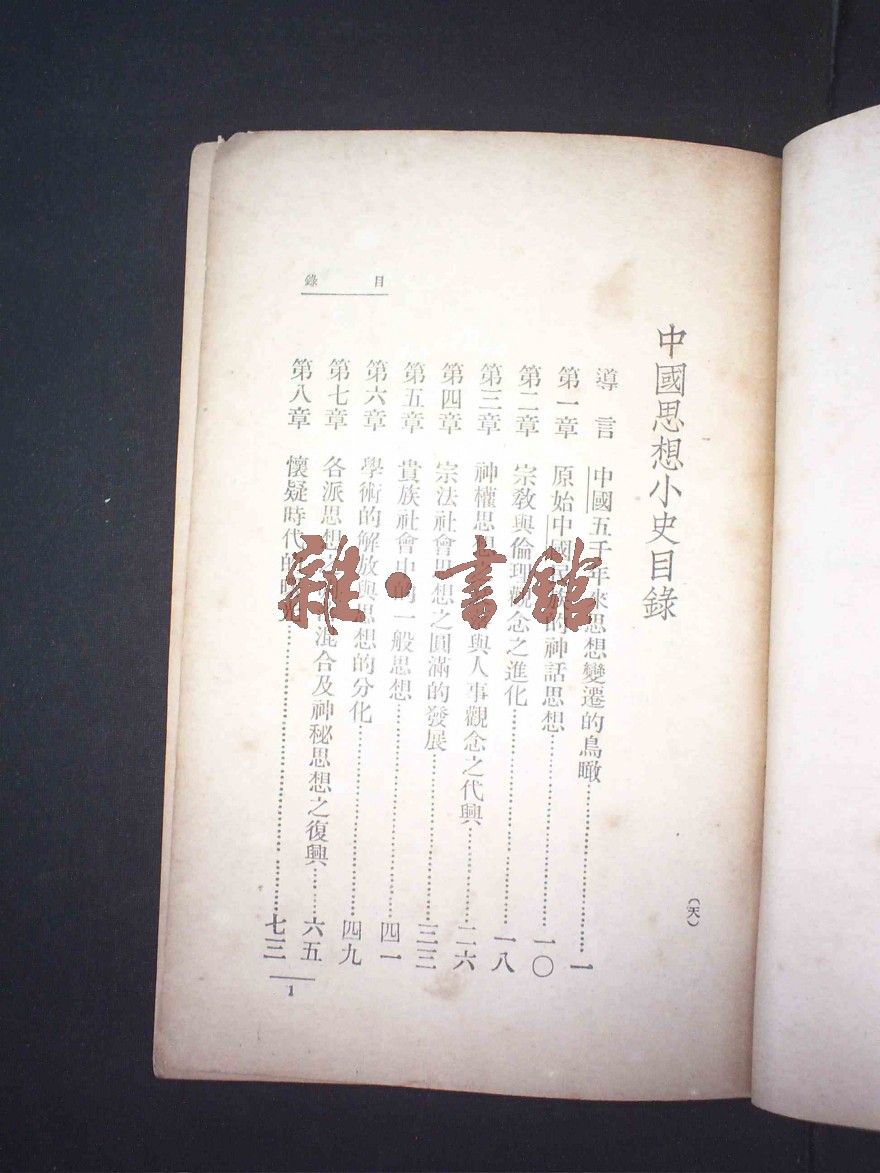 中國思想小史目錄
(天)
導言 中國五千年來思想變遷的鳥瞰……一
第一章 原始中國民族的神話思想……一〇
第二章 宗教與倫理觀念之進化……一八
第三章 神權思想 與人事觀念之代興……二六
第四章 宗法社會思想之圓滿的發展……三三
第五章 貴族社會中的一般思想……四一
第六章 學術的解放與思想的分化……四九
第七章 各派思想 混合及神秘思想之復興……六五
第八章 懷疑時代的 ……七三
目錄
1
雜·書館